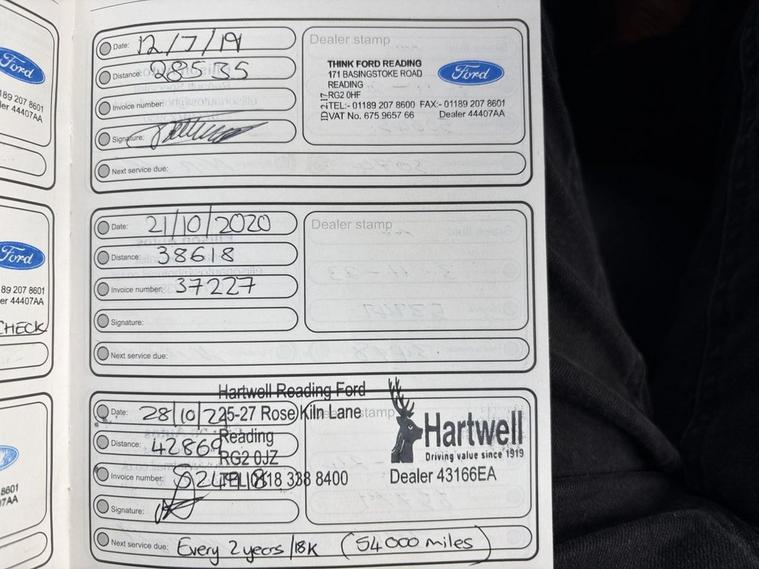 Date: 12/7/19
Distance: 28535
Invoice number:
Signature:
Next service due:
Dealer stamp
THINK FORD READING
171 BASINGSTOKE ROAD
READING
RG2 0HF
TEL:- 01189 207 8600 FAX:- 01189 207 8601
VAT No. 675 9657 66 Dealer 44407AA
Ford
Date: 21/10/2020
Distance: 38618
Invoice number: 37227
Signature:
Next service due:
Dealer stamp
Date: 28/10/22
Distance: 42869
Invoice number:
Signature:
Next service due: Every 2 years/18K (54000 miles)
Hartwell Reading Ford
25-27 Rose Kiln Lane
Reading
RG2 0JZ
TEL 0118 338 8400
stamp
Hartwell
Driving value since 1919
Dealer 43166EA
Ford
89 207 8601
er 44407AA
Ford
89 207 8601
er 44407AA
CHECK
8601
7AA